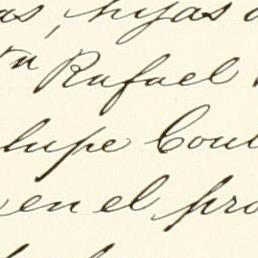 as, hijas
Rafael
lupe Cou
en el pro